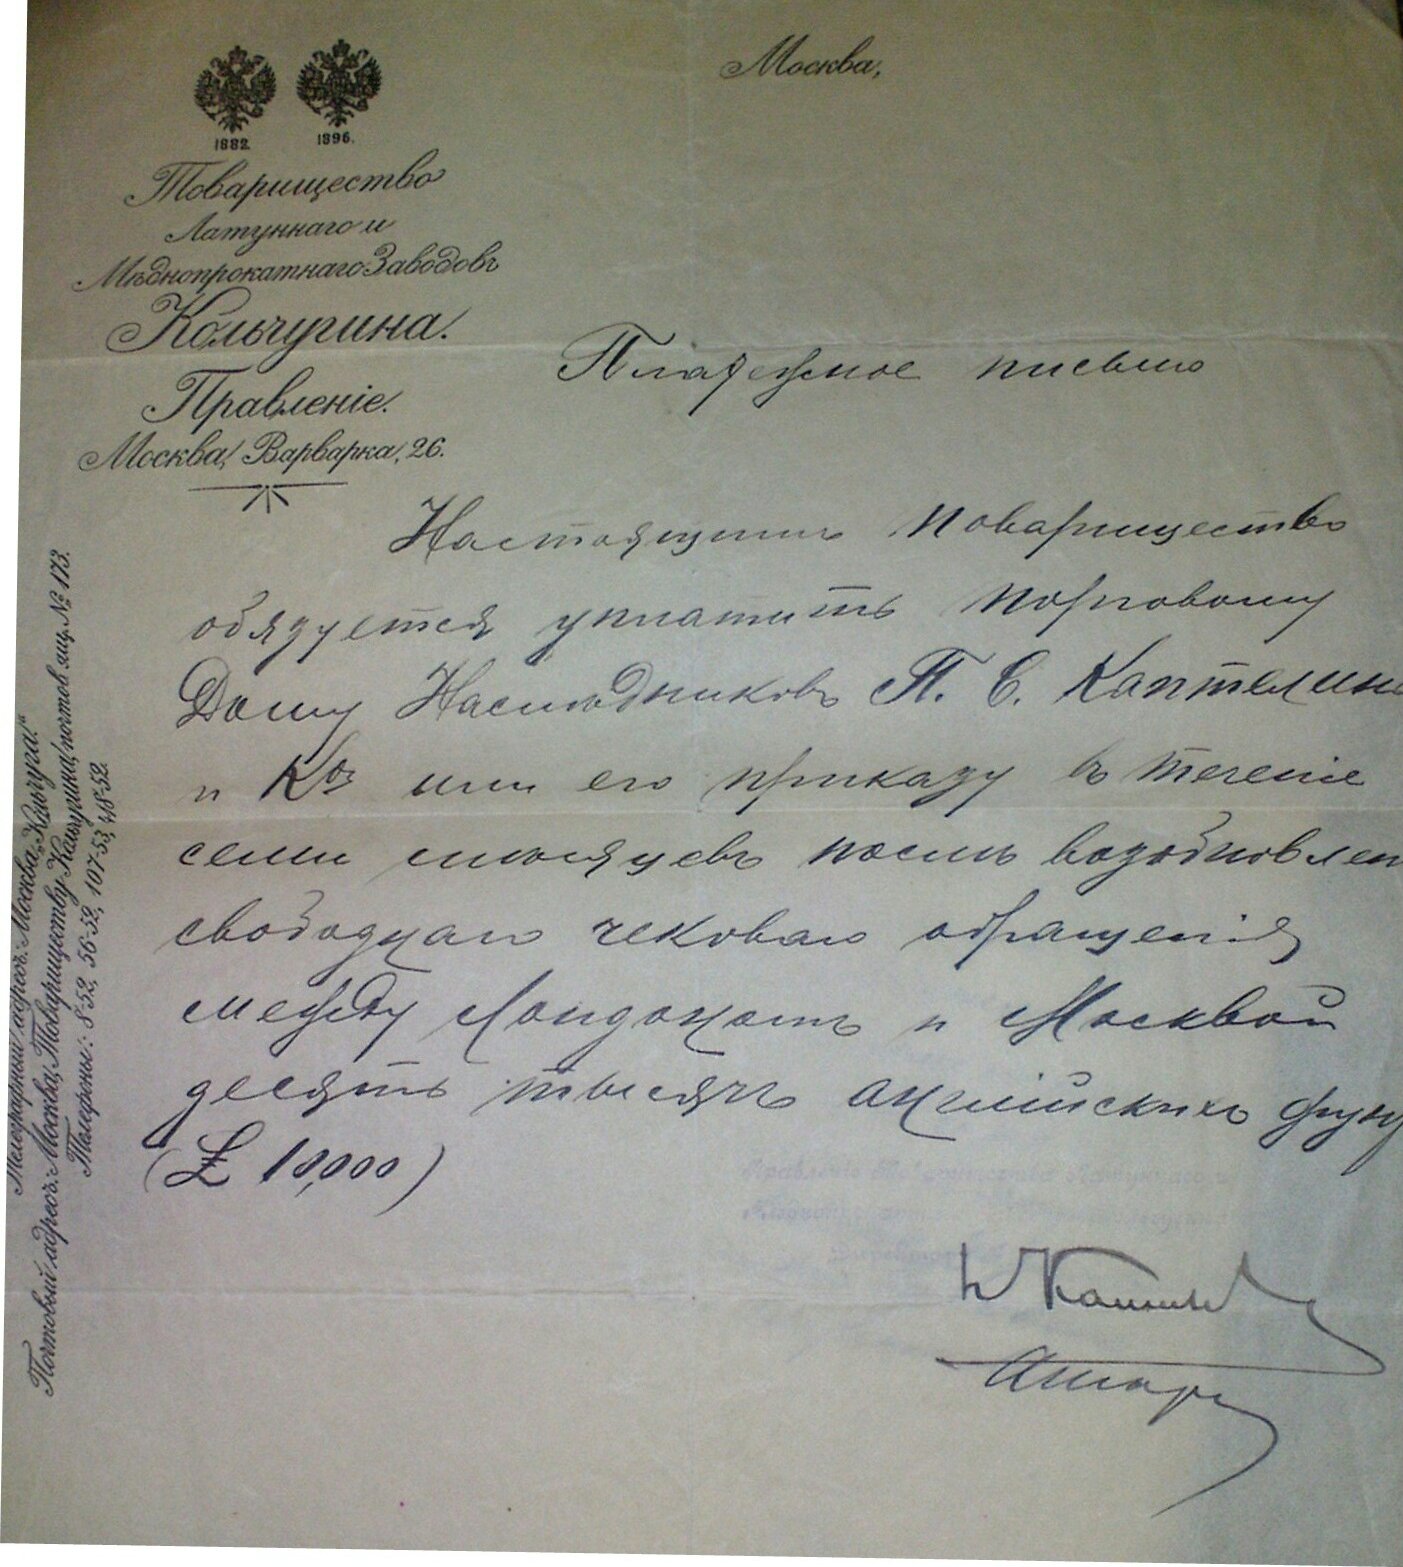 Москва,
1882. 1896.
Товарищество
Латуннаго и
Мѣднопрокатнаго Заводовъ
Кольчугина.
Правленіе.
Москва, Варварка, 26.
Телеграфный адресъ: Москва, "Кольчуга".
Почтовый адресъ: Москва, Товариществу Кольчугина, почтов. ящ. № 173.
Телефоны: 8-52, 56-52, 107-53, 48-52.
Платежное письмо
Настоящимъ товарищество
обязуется уплатить торговому
Дому Наслѣдниковъ П. С. Каптелина
и Ко или его приказу въ теченіе
семи мѣсяцевъ послѣ возобновлен
свободнаго чековаго обращенія
между Лондономъ и Москвой
десять тысячъ англійскихъ фун
(£ 10,000)